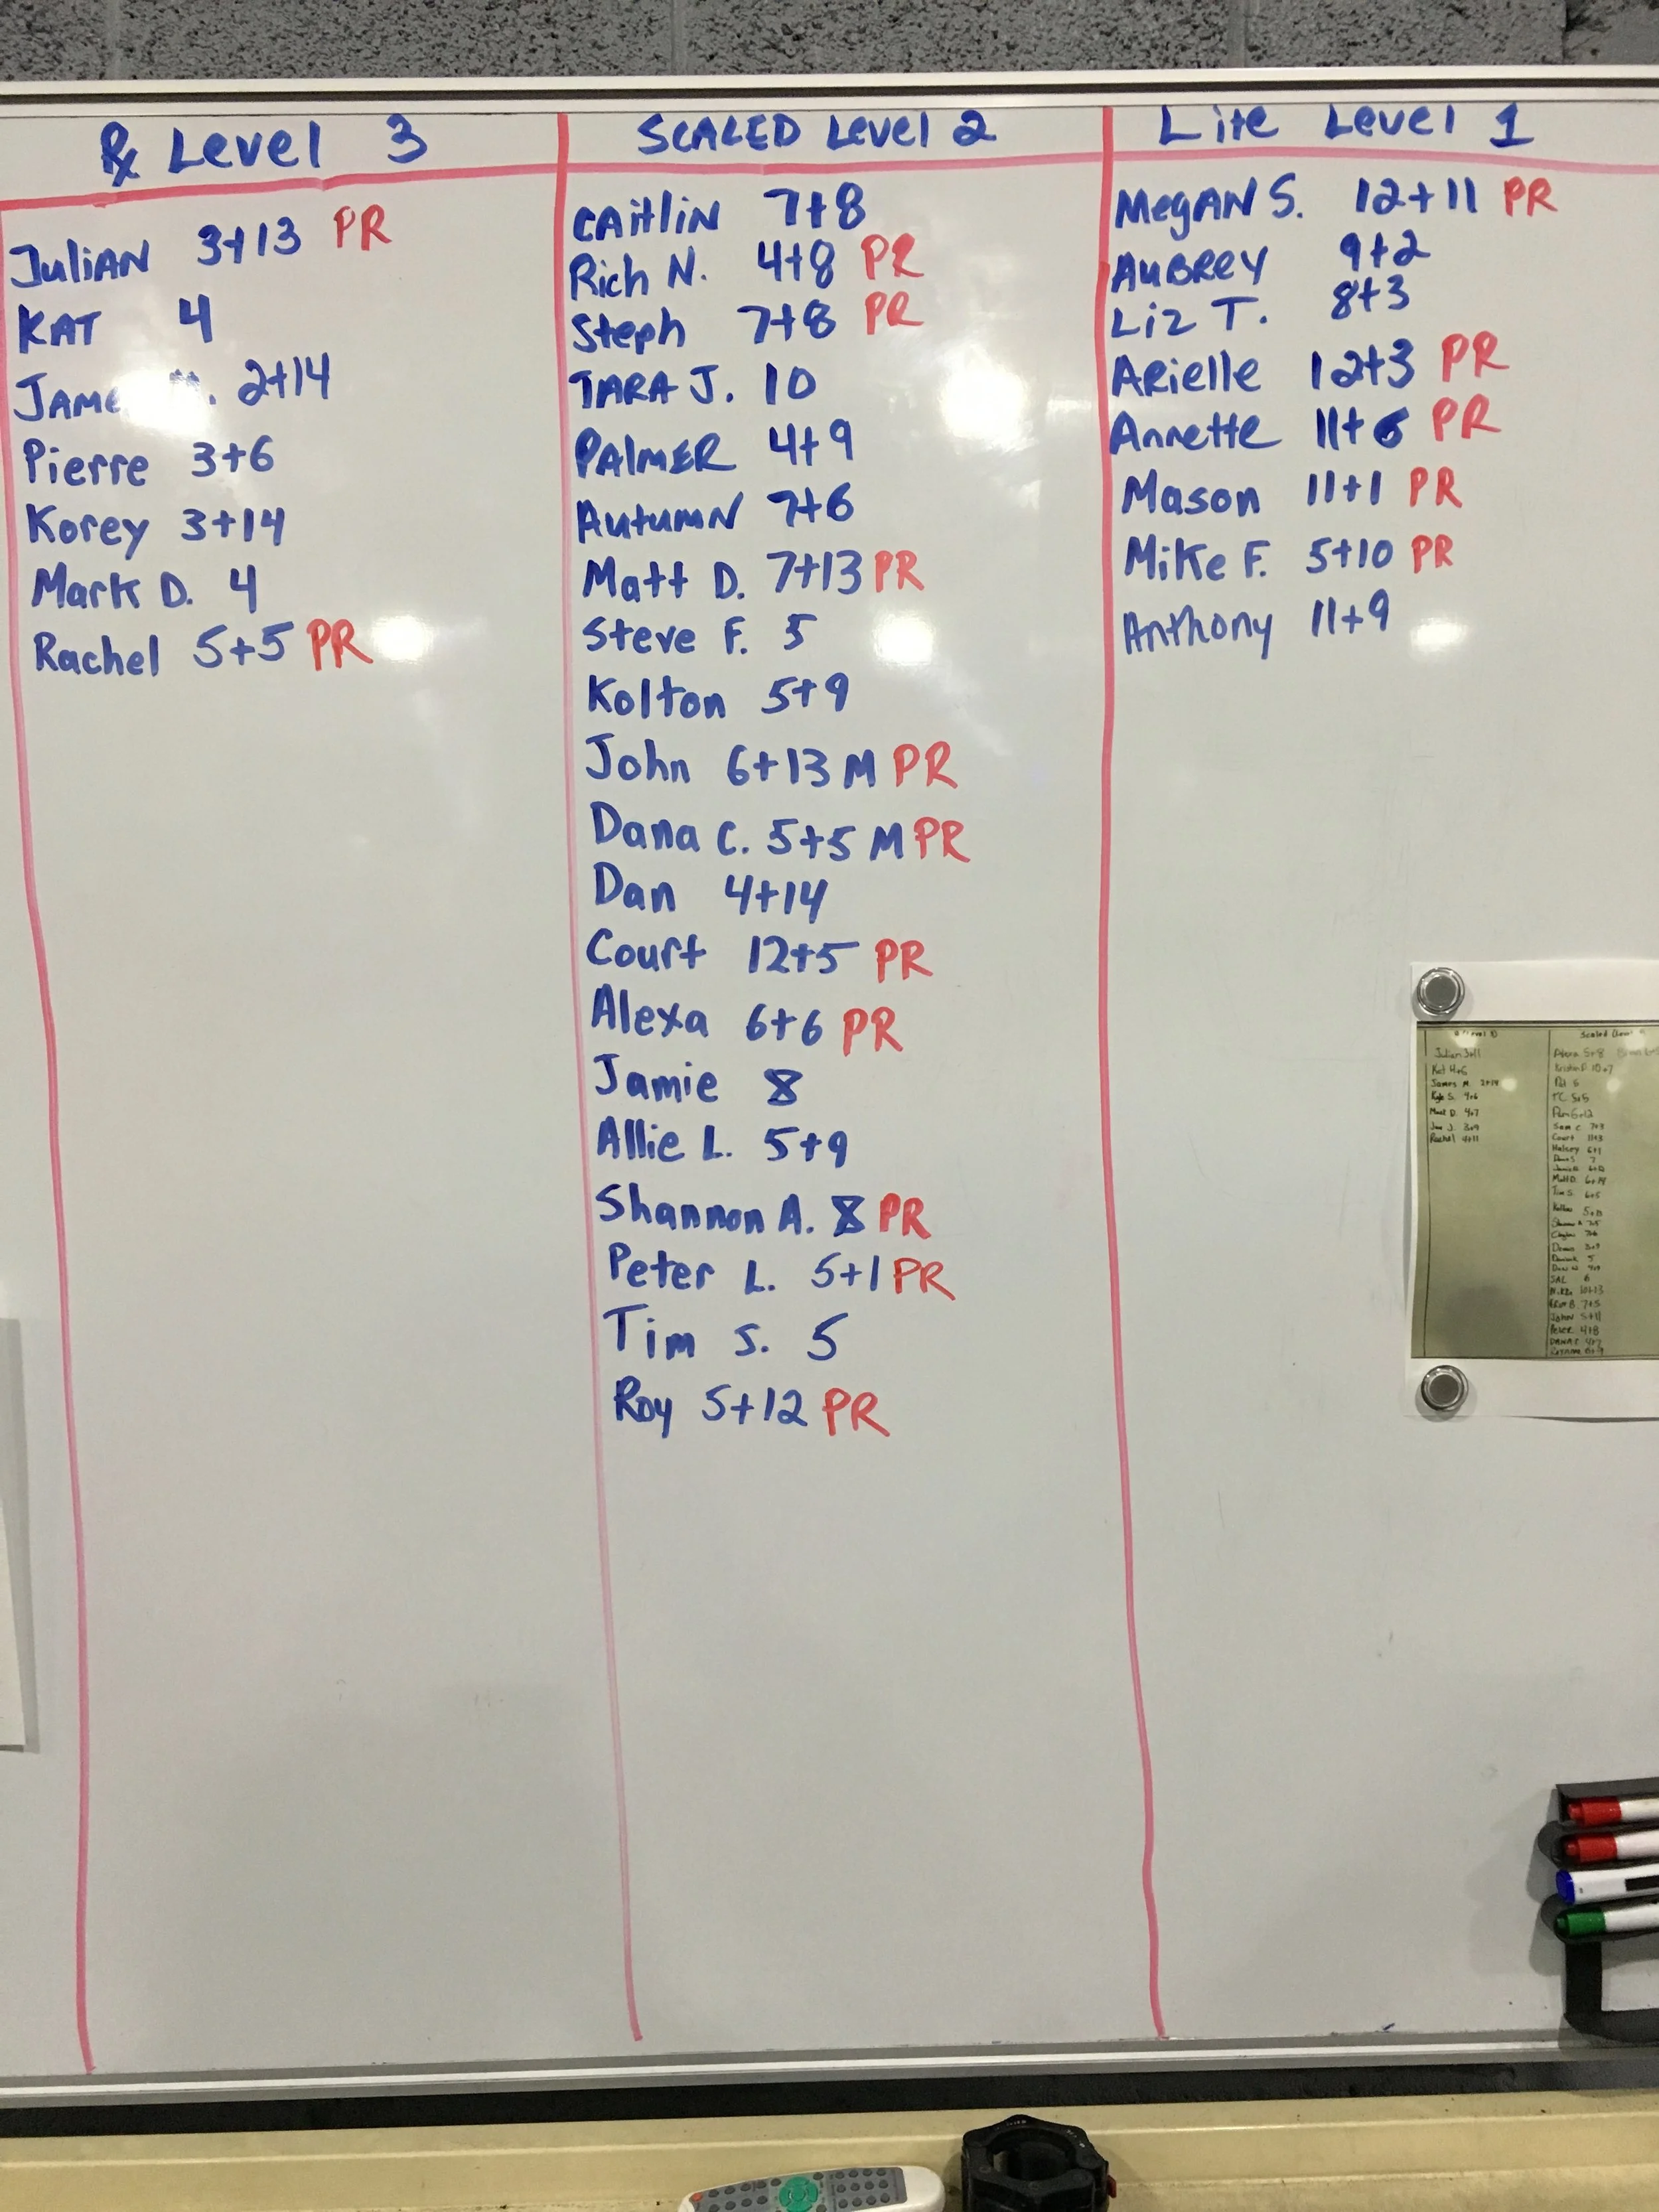 Rx Level 3
Julian 3+13 PR
Kat 4
2+14
Pierre 3+6
Korey 3+14
Mark D. 4
Rachel 5+5 PR
SCALED Level 2
Caitlin 7+8
Rich N. 4+8 PR
Steph 7+8 PR
TARA J. 10
PAlMER 4+9
Autumn 7+6
Matt D. 7+13 PR
Steve F. 5
Kolton 5+9
John 6+13 M PR
Dana C. 5+5 M PR
Dan 4+14
Court 12+5 PR
Alexa 6+6 PR
Jamie 8
Allie L. 5+9
Shannon A. 8 PR
Peter L. 5+1 PR
Tim S. 5
Roy 5+12 PR
Lite Level 1
Megan S. 12+11 PR
AuBRey 9+2
Liz T. 8+3
Arielle 12+3 PR
Annette 11+6 PR
Mason 11+1 PR
Mike F. 5+10 PR
Anthony 11+9
Julian 3+11
Kat 4+6
James M. 2+14
Mark D. 4+7
Rachel 4+11